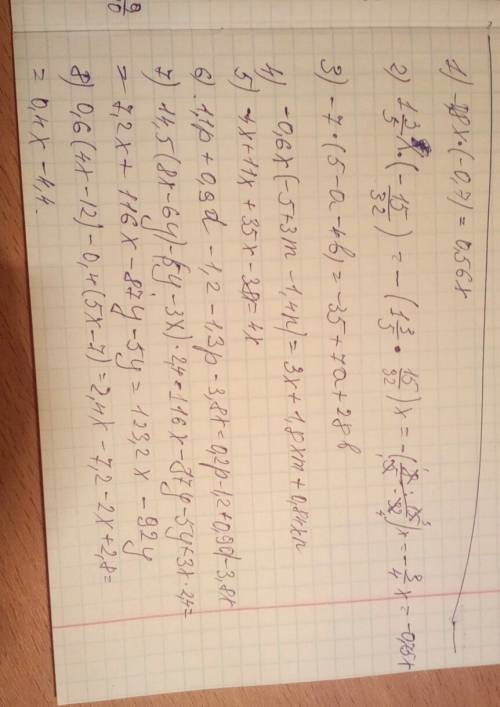 1) -0,8x·(-0,7) = 0,56x
2) 1 3/5 x·(- 15/32) = -(1 3/5 · 15/32)x = -(8/5 · 15/32)x = -3/4 x = -0,75x
3) -7·(5-a-4b) = -35+7a+28b
4) -0,6x(-5+3m-1,4n) = 3x+1,8xm+0,84xn
5) -4x+11x+35x-38=4x
6) 1,1p+0,9d-1,2-1,3p-3,8x=0,2p-1,2+0,9d-3,8x
7) 14,5(8x-6y)-(5y-3x)·2,4=116x-87y-5y+3x·2,4=
= 7,2x+116x-87y-5y=123,2x-92y
8) 0,6(4x-12)-0,4(5x-7)=2,4x-7,2-2x+2,8=
= 0,4x-4,4.